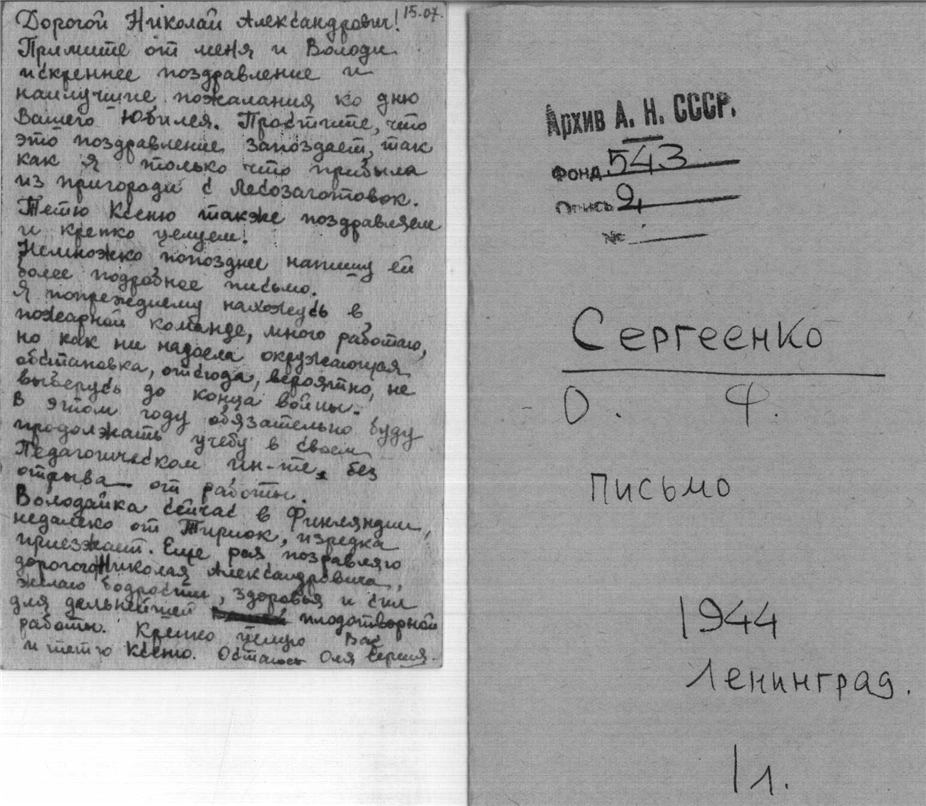 15.07.
Дорогой Николай Александрович!
Примите от меня и Володи
искреннее поздравление и
наилучшие пожелания ко дню
Вашего юбилея. Простите, что
это поздравление запоздает, так
как я только что прибыла
из пригорода с лесозаготовок.
Тетю Ксеню также поздравляем
и крепко целуем!
Немножко попозднее напишу ей
более подробное письмо.
Я попрежднему нахожусь в
пожарной команде, много работаю,
но как ни надоела окружающая
обстановка, отсюда, вероятно, не
выберусь до конца войны.
В этом году обязательно буду
продолжать учебу в своем
Педагогическом ин-те, без
отрыва от работы.
Володайка сейчас в Финляндии,
недалеко от Териок, изредка
приезжает. Еще раз поздравляю
дорогого Николая Александровича,
желаю бодрости, здоровья и сил
для дальнейшей плодотворной
работы. Крепко целую Вас
и тетю Ксеню. Остаюсь Оля
Архив А. Н. СССР.
Фонд 543
Опись 2
№
Сергеенко
О. Ф.
письмо
1944
Ленинград.
1 л.